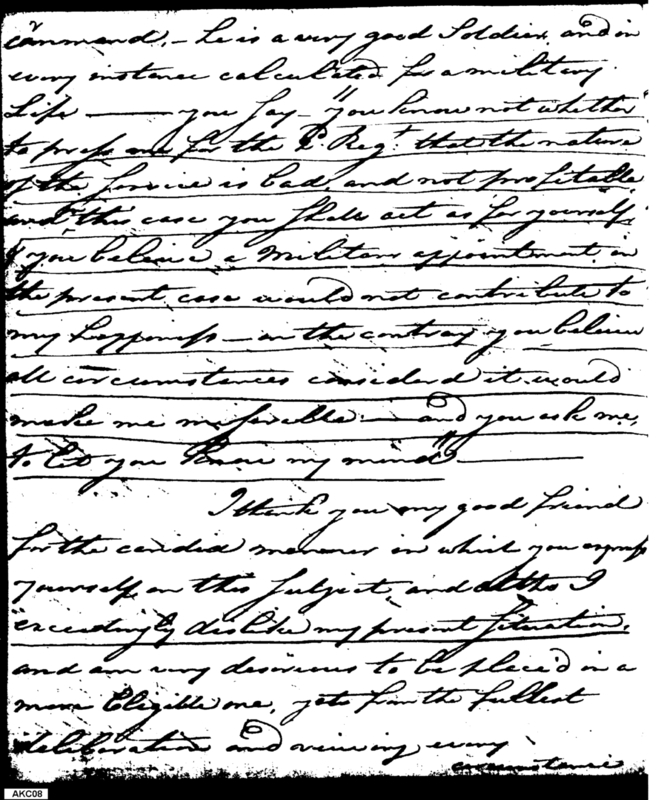 command, – he is a very good Soldier, and in
every instance calculated for a military
Life —— you say – "you know not whether
to press me for the P. Regt. that the nature
of the Service is bad, and not profitable
this case you shall act as for yourself,
you believe a Military appointment in
the present case would not contribute to
my happiness – on the contrary you believe
all circumstances considerd it would
make me miserable – and you ask me,
to let you know my mind" ——
I thank you my good friend
for the candid manner in which you express
yourself, on this Subject, and altho I
exceedingly dislike my present Situation,
and am very desirious to be place'd in a
more Eligible one, yet from the fullest
deliberation and viewing every
circumstance
AKC08